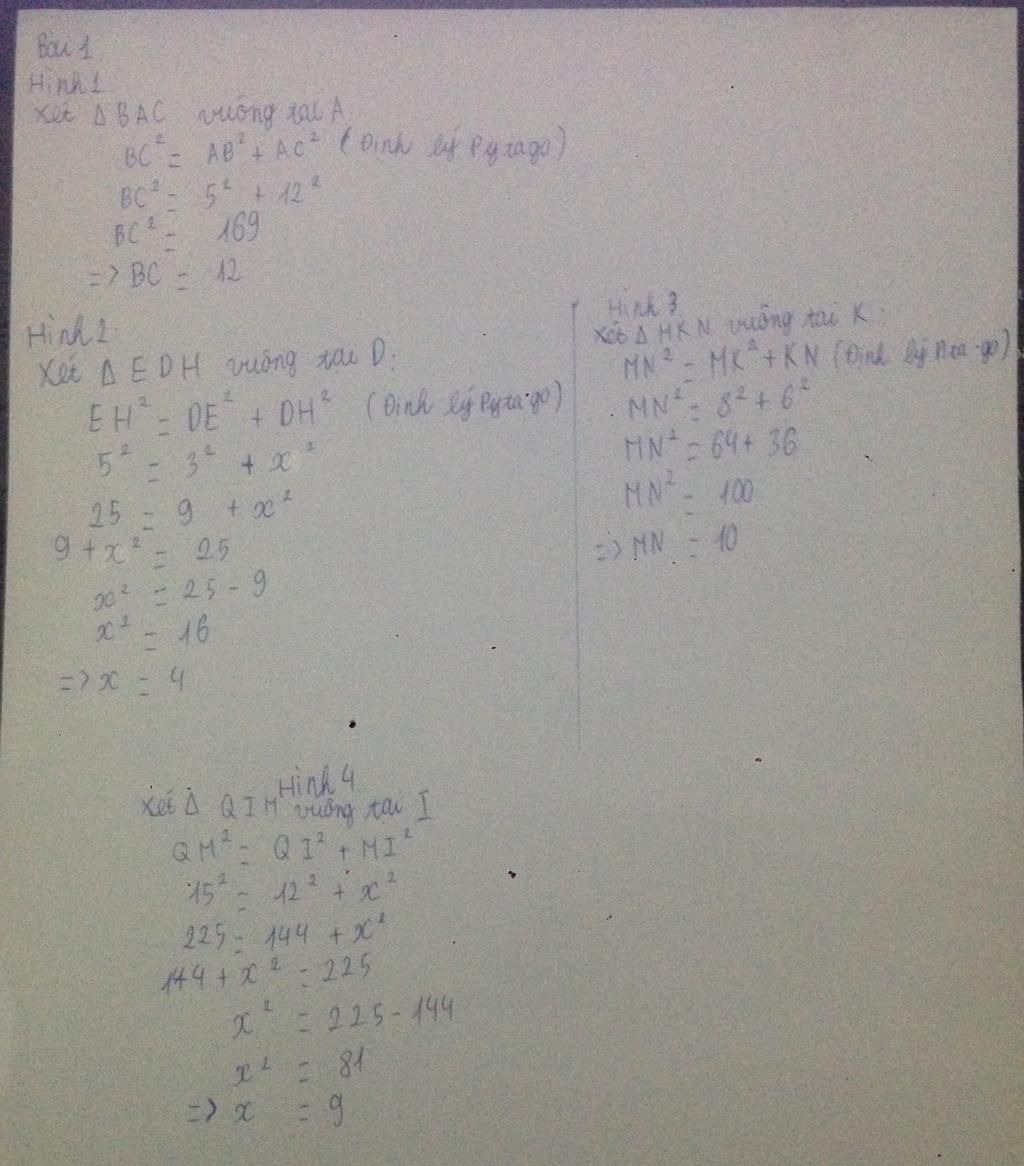 Bài 1
Hình 1
Xét Δ BAC vuông tại A
BC² = AB² + AC² (Định lý Pytago)
BC² = 5² + 12²
BC² = 169
=> BC = 12
Hình 2
Xét Δ EDH vuông tại D:
EH² = DE² + DH² (Định lý Pytago)
5² = 3² + x²
25 = 9 + x²
9 + x² = 25
x² = 25 - 9
x² = 16
=> x = 4
Hình 3
Xét Δ MKN vuông tại K.
MN² = MK² + KN (Định lý Pita-go)
MN² = 8² + 6²
MN² = 64 + 36
MN² = 100
=> MN = 10
Hình 4
Xét Δ QIM vuông tại I
QM² = QI² + MI²
15² = 12² + x²
225 = 144 + x²
144 + x² = 225
x² = 225 - 144
x² = 81
=> x = 9